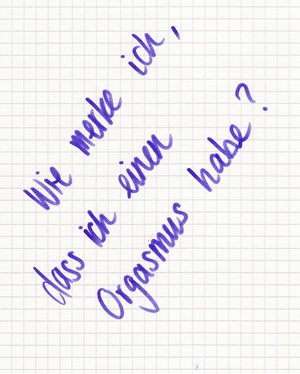 Wie merke ich,
dass ich einen
Orgasmus habe?